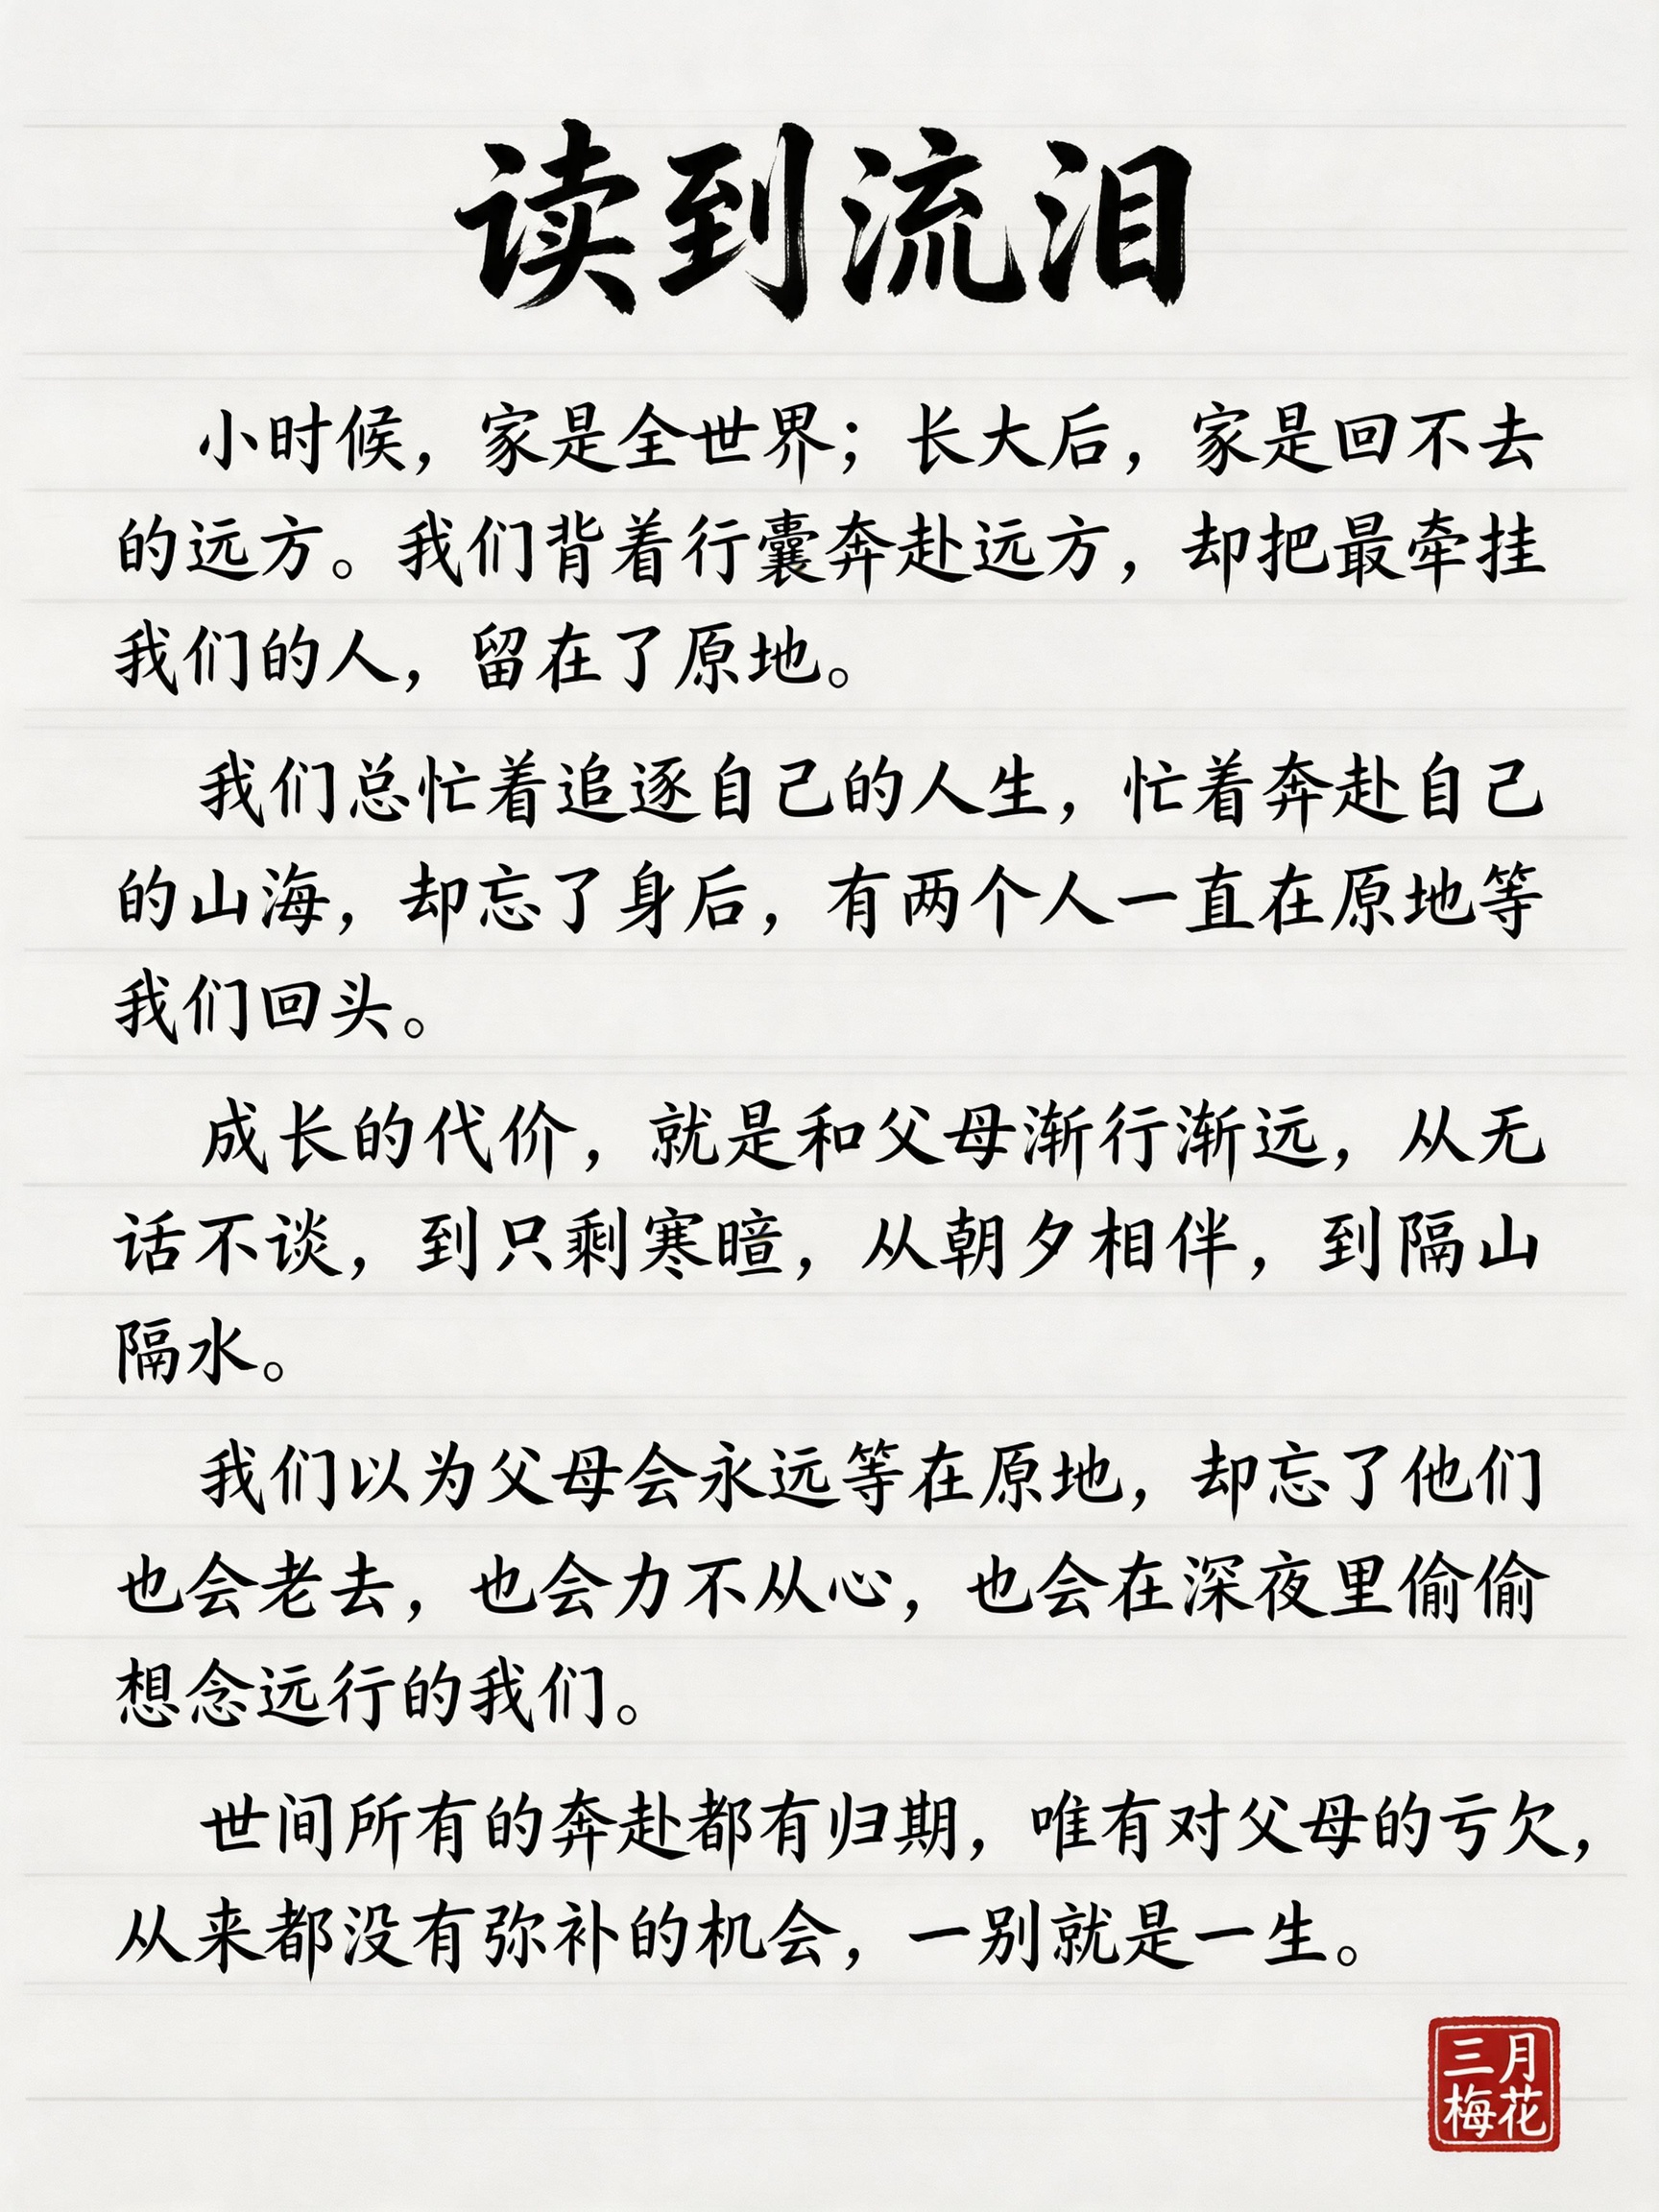 读到流泪
小时候，家是全世界；长大后，家是回不去
的远方。我们背着行囊奔赴远方，却把最牵挂
我们的人，留在了原地。
我们总忙着追逐自己的人生，忙着奔赴自己
的山海，却忘了身后，有两个人一直在原地等
我们回头。
成长的代价，就是和父母渐行渐远，从无
话不谈，到只剩寒暄，从朝夕相伴，到隔山
隔水。
我们以为父母会永远等在原地，却忘了他们
也会老去，也会力不从心，也会在深夜里偷偷
想念远行的我们。
世间所有的奔赴都有归期，唯有对父母的亏欠，
从来都没有弥补的机会，一别就是一生。
三月
梅花